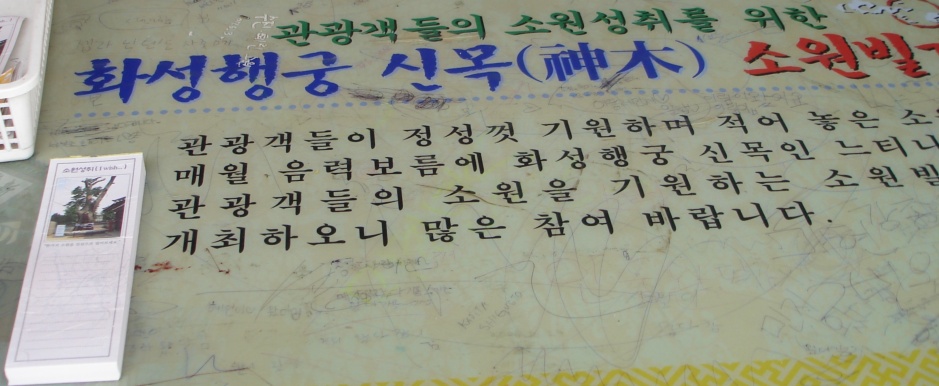 관광객들의 소원성취를 위한
화성행궁 신목(神木) 소원빌
관광객들이 정성껏 기원하며 적어 놓은 소
매월 음력보름에 화성행궁 신목인 느티
관광객들의 소원을 기원하는 소원빌
개최하오니 많은 참여 바랍니다.
소원성취(I wish...)